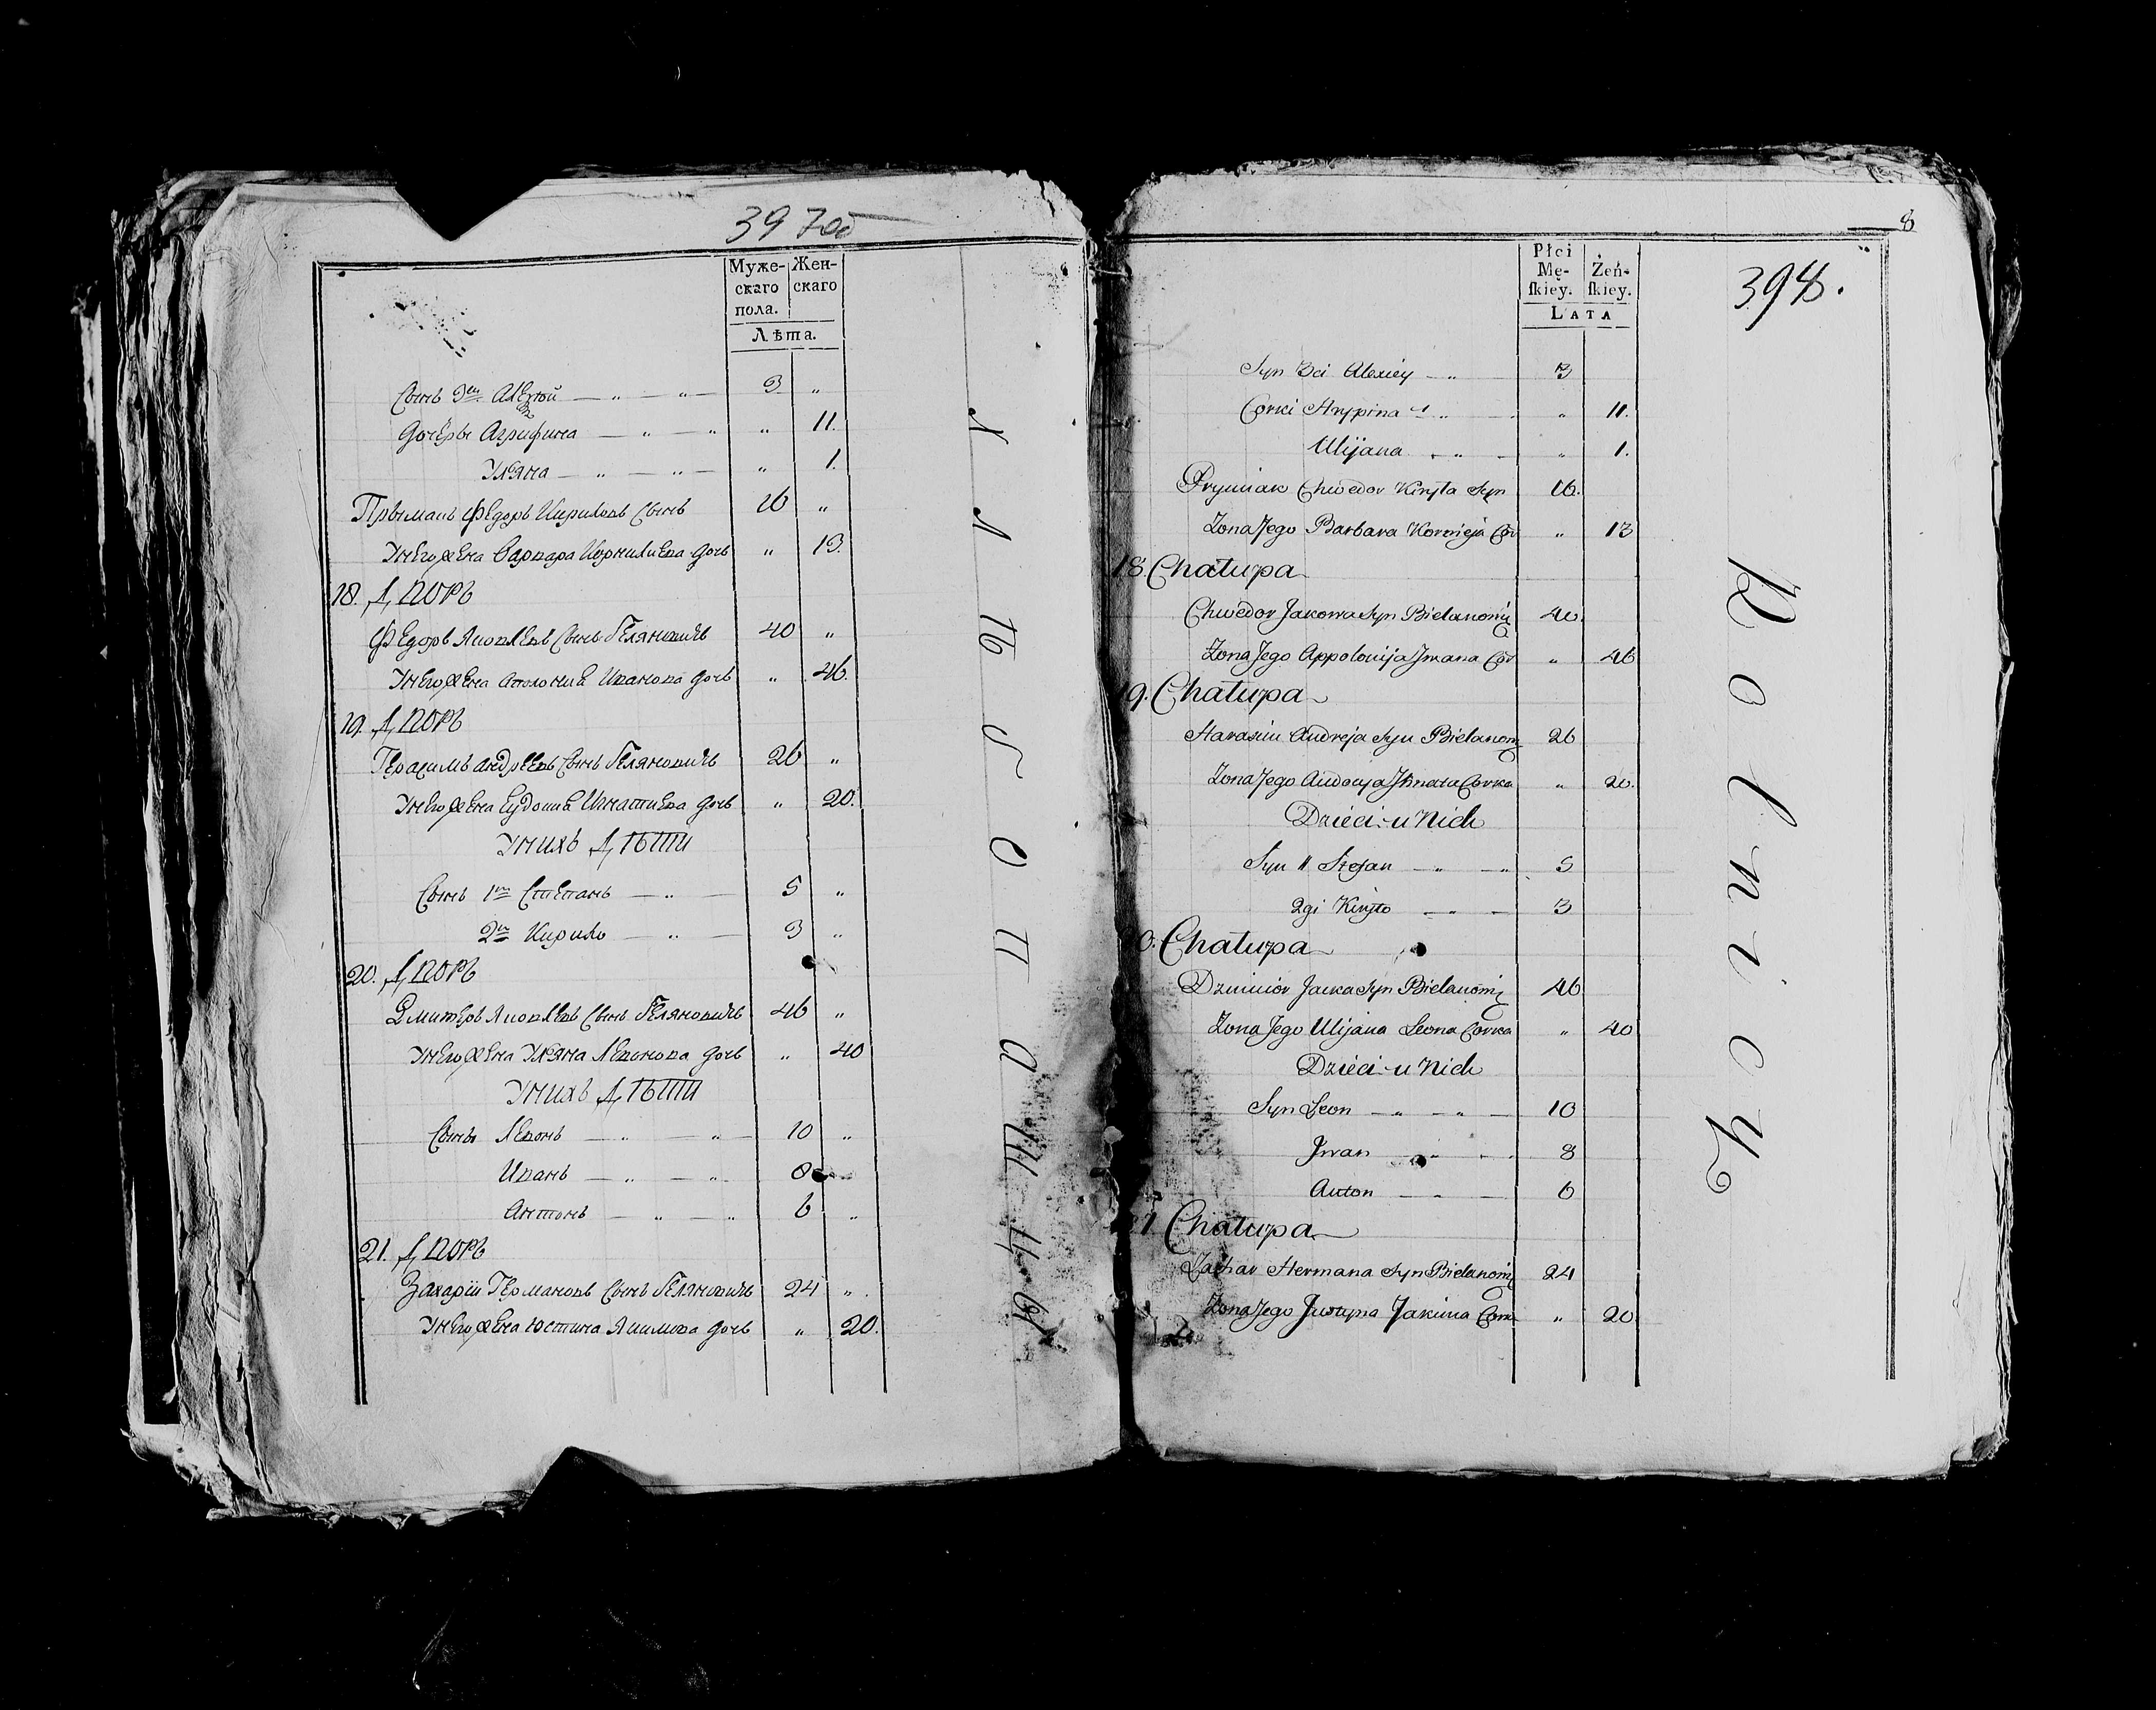 397об
Муже- Жен-
скаго скаго
пола.
Лѣта.
Сынъ 3й Алексѣй — „ — „ — 3 „
Дочеры Агрифина — „ — „ „ 11.
Ульяна — „ — „ — „ 1.
Прыманъ Федоръ Кириловъ Сынъ 16 „
У него жена Варвара Корнилиева дочь „ 13.
18. Дворъ
Федоръ Яковлевъ Сынъ Беляновичъ 40 „
У него жена Аполония Иванова дочь „ 46.
19. Дворъ
Герасимъ Андреевъ Сынъ Беляновичъ 26 „
У него жена Еудокия Игнатиева дочь „ 20.
У нихъ Дѣти
Сынъ 1й Степанъ — „ — 5 „
2й Кирило — „ — 3 „
20. Дворъ
Дмитеръ Яковлевъ Сынъ Беляновичъ 46 „
У него жена Ульяна Левонова дочь „ 40
У нихъ Дѣти
Сынъ Левонъ — „ — „ 10 „
Иванъ — „ — „ 8
Антонъ — „ — „ 6 „
21. Дворъ
Захарій Германовъ Сынъ Беляновичъ 24 „
У него жена Юстина Якимова дочь „ 20.
8
Płci
Mę- Żeń-
ſkiey. ſkiey.
LATA
398.
Syn 3ci Alexiey — „ — 3
Corki Aryppina „ — „ 11.
Ulijana „ — „ 1.
Prymiak Chwedor Kiryła Syn 16.
Zona Jego Barbara Kornieja Cor „ 13
18. Chałupa
Chwedor Jakowa Syn Bielanowicz 40.
Zona Jego Appolonija Jwana Cor „ 46
19. Chałupa
Harasim Andreja Syn Bielanow 26
Zona Jego Audocja Jhnata Corka „ 20.
Dzieci u Nich
Syn 1 Stefan — „ — „ 5
2gi Kiryło — „ — 3
20. Chałupa
Dzmicior Jacka Syn Bielanowicz 46
Zona Jego Ulijana Leona Corka „ 40
Dzieci u Nich
Syn Leon — „ — „ — 10
Jwan — „ — 8
Anton — „ — 6
21. Chałupa
Zachar Hermana Syn Bielanowicz 24
Zona Jego Justyna Jakima Cork „ 20
Rolnicy